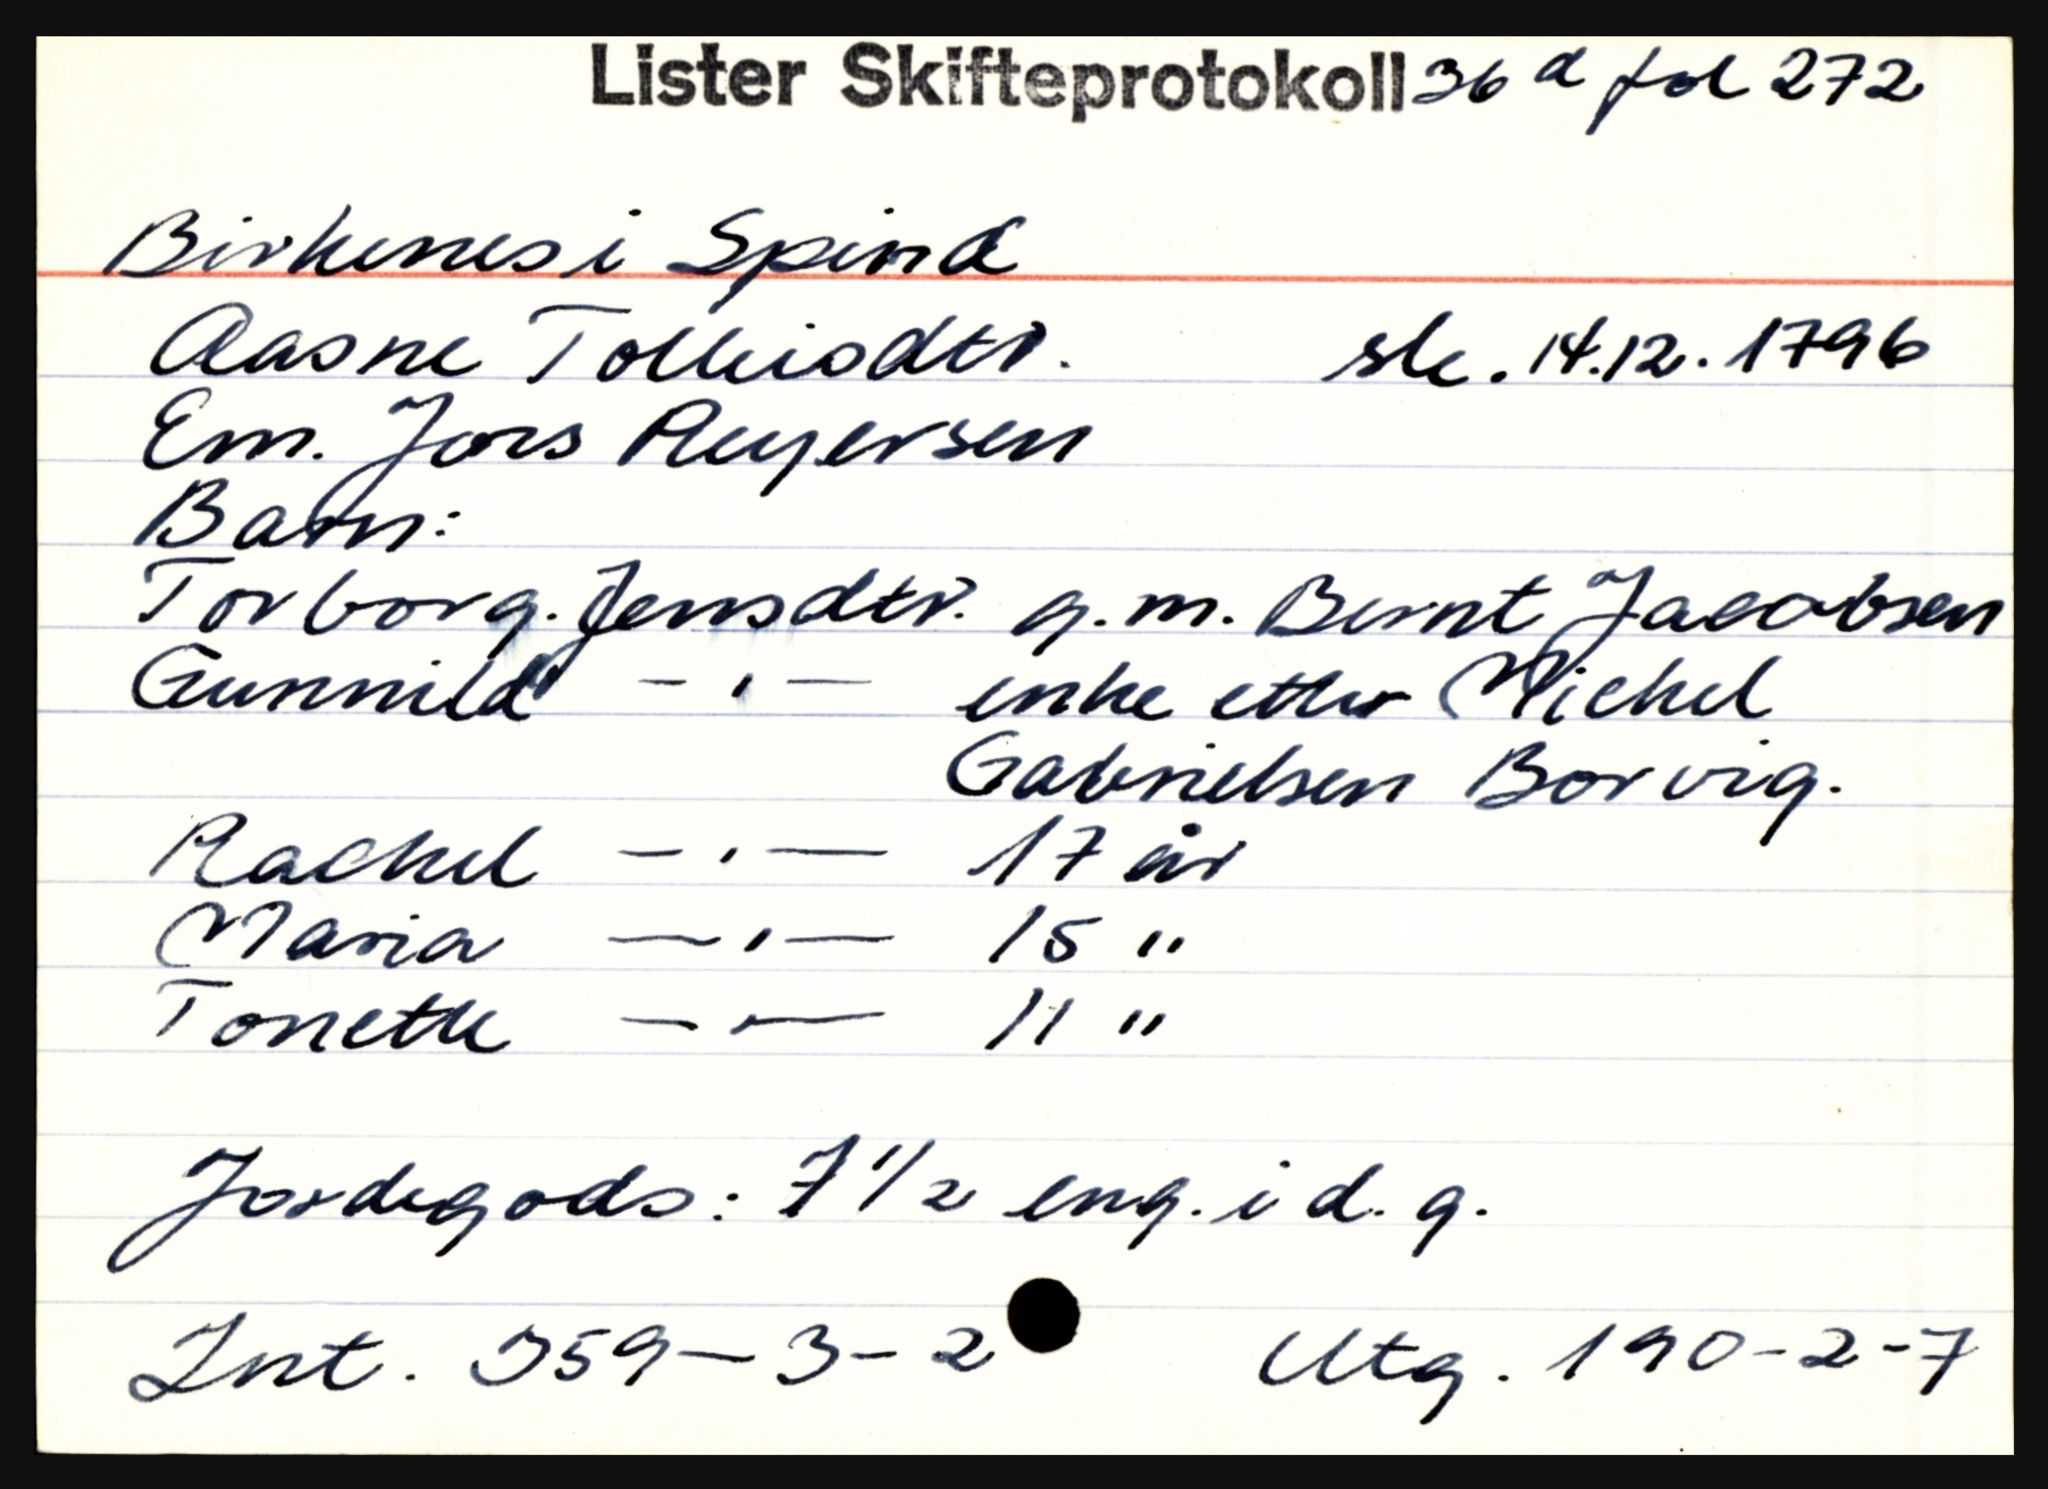 Lister Skifteprotokoll 36 a fol 272
Birkenes i Spind
Aasne Tolleisdtr. sk. 14.12.1796
Em. Jens Reyersen
Barn:
Torborg. Jensdtr. g. m. Bernt Jacobsen
Gunnild — " — enke etter Michel
Gabrielsen Borvig.
Rachel — " — 17 år
Maria — " — 15 "
Tonette — " — 11 "
Jordegods: 7 1/2 eng. i d. g.
Int. 359 - 3 - 2 Utg. 190 - 2 - 7